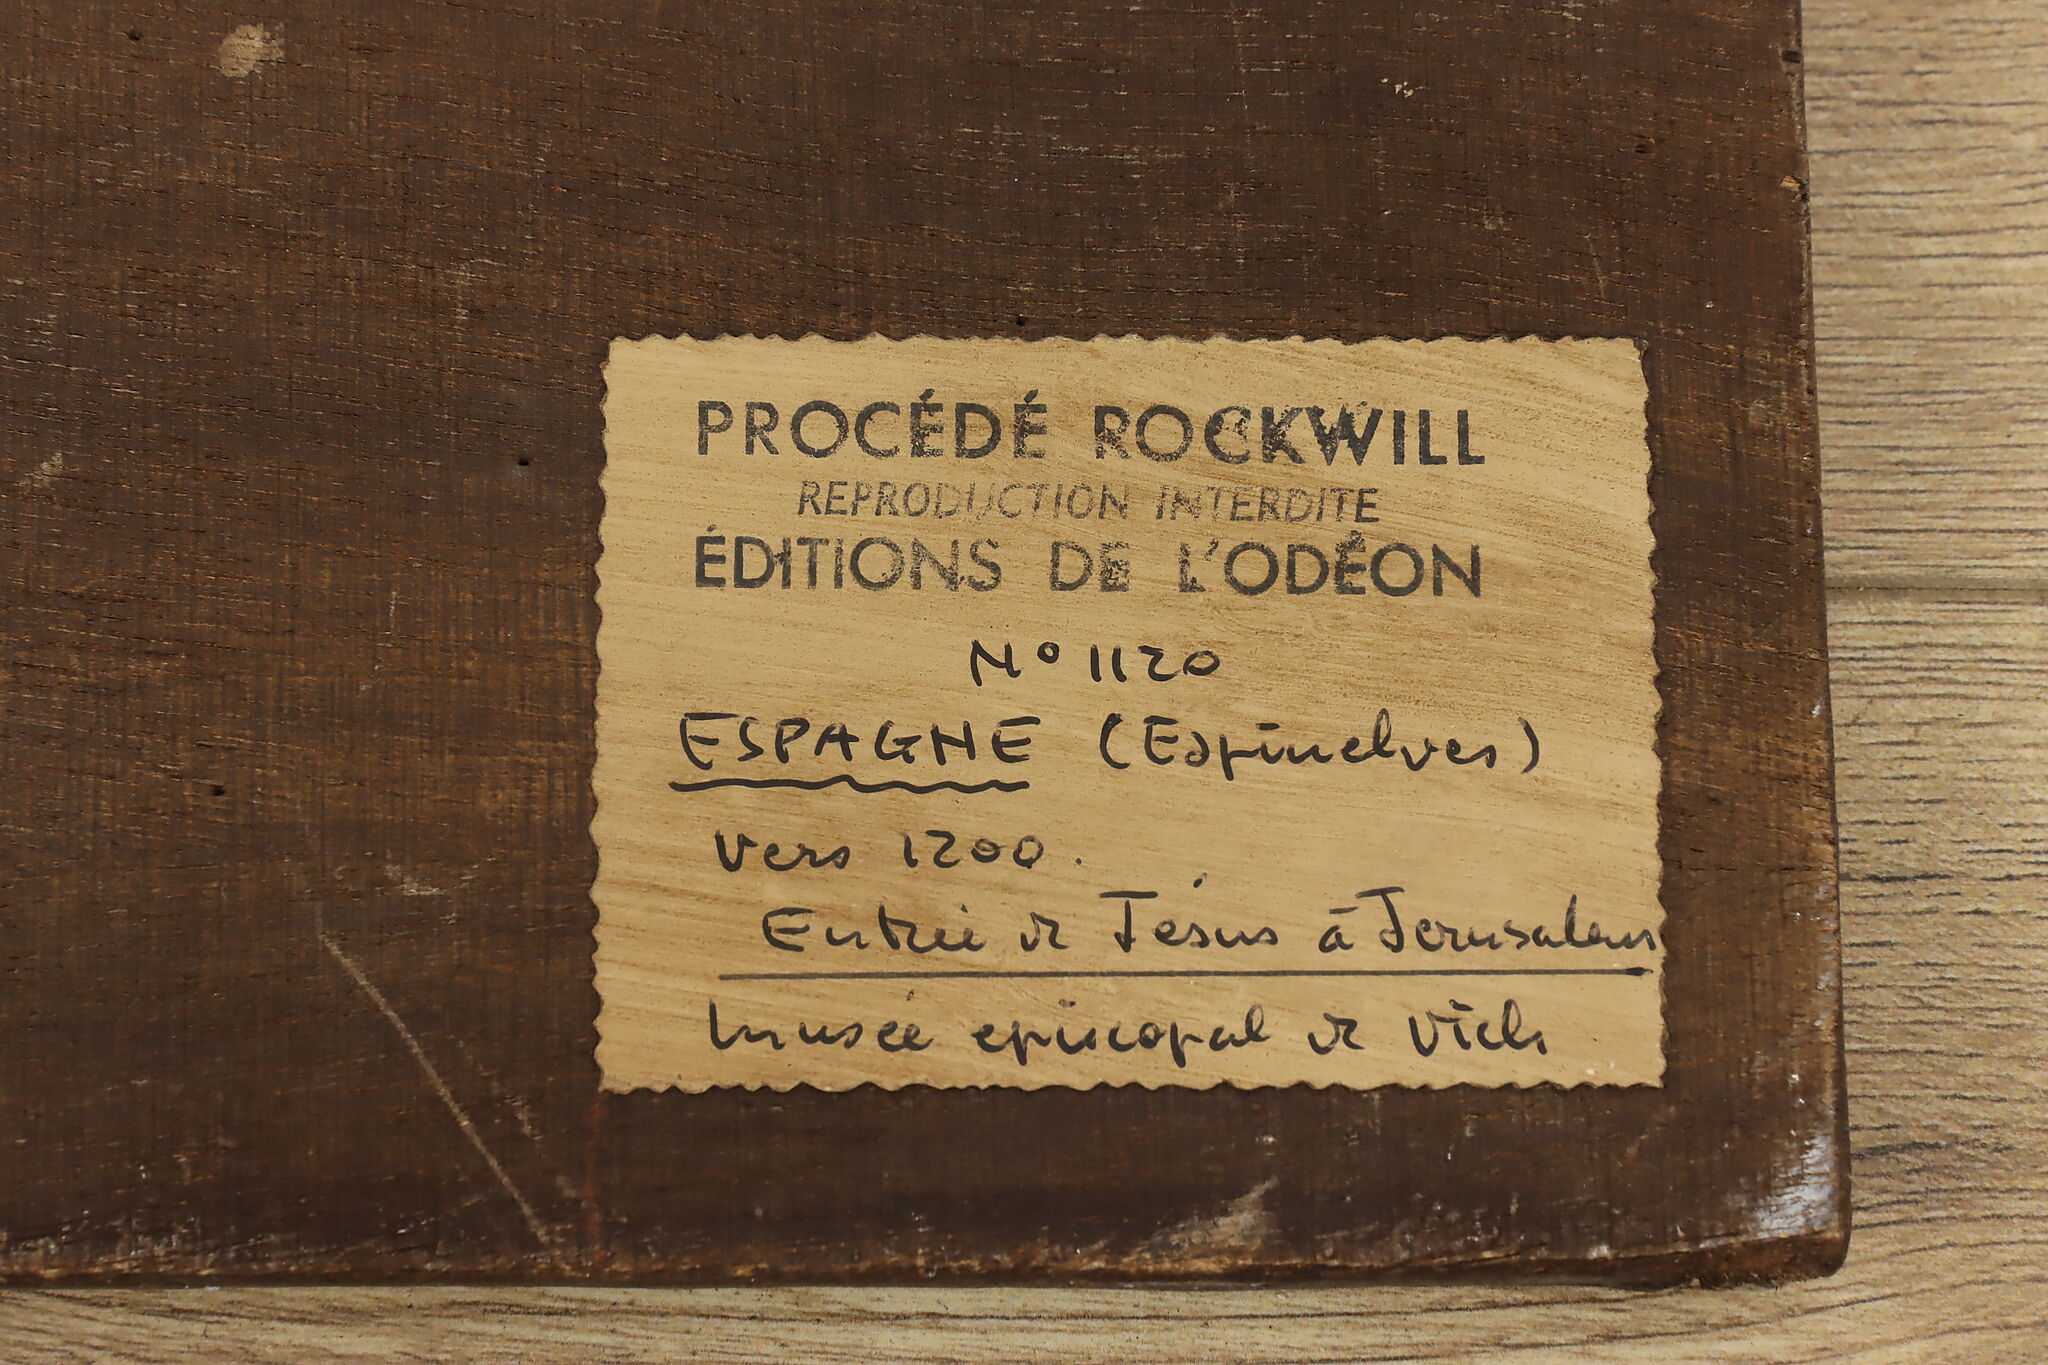 PROCÉDÉ ROCKWILL
REPRODUCTION INTERDITE
ÉDITIONS DE L'ODÉON
N° 1120
ESPAGNE (Espinelves)
vers 1200.
Entrée de Jésus à Jerusalem
Musée episcopal de Vich